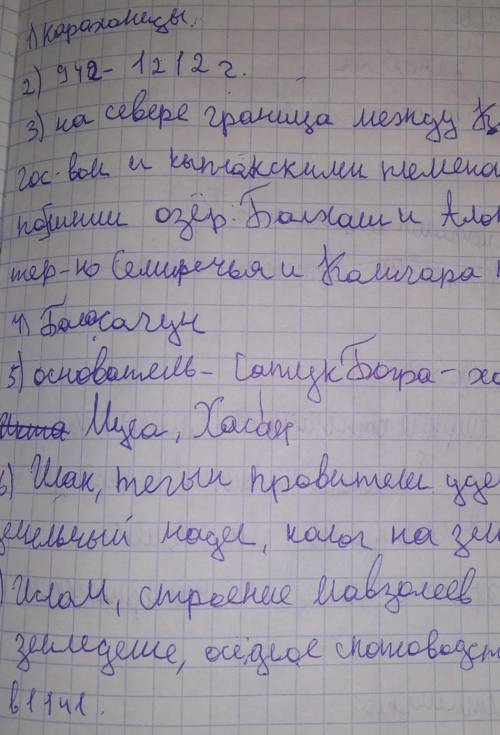 1) Караханиды.
2) 942 - 1212 г.
3) на севере граница между К
гос-вом и кыпчакскими племена
озёр: Балхаш и Алак
тер-но Семиречья и Кашгара
4) Баласагун
5) основатель - Сатук Богра - ха
Муса, Хасан
6) Илак, тегын правители уде
земельный надел, налог на зем
) Ислам, строение мавзолеев
земледелие, оседлое скотоводст
в 1141.